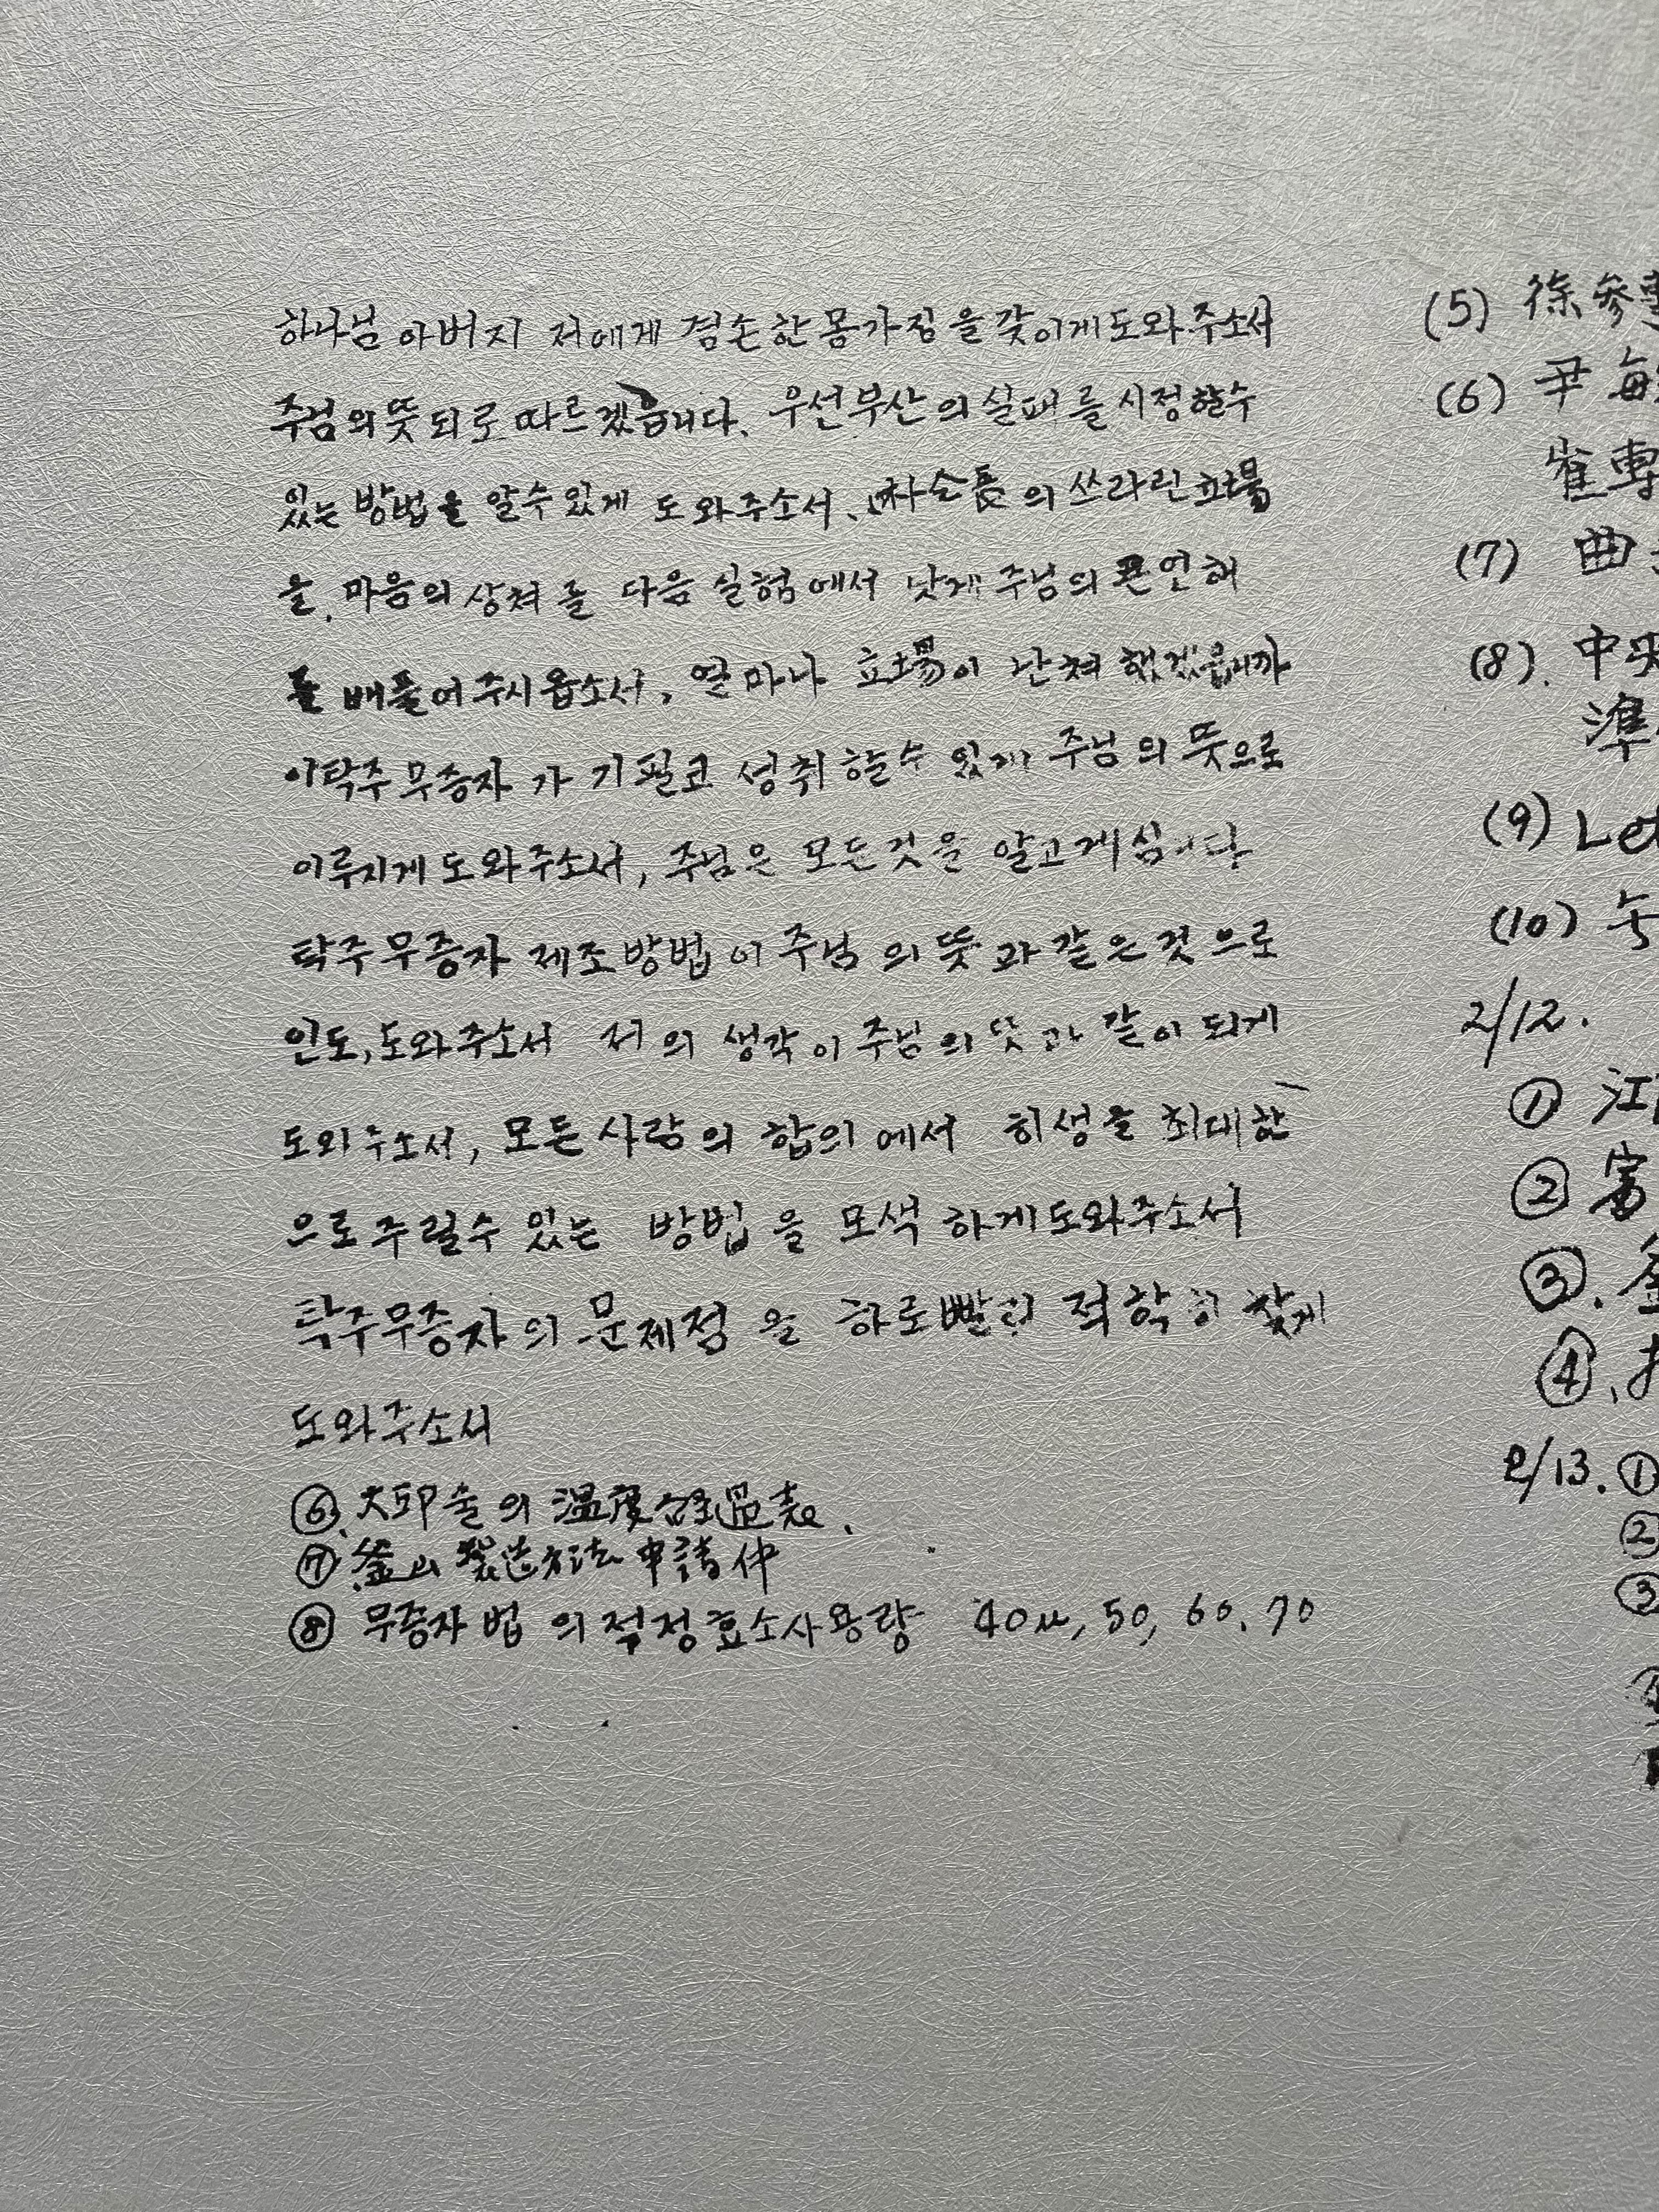 하나님 아버지 저에게 겸손한 몸가짐을 갖이게 도와주소서
주님의 뜻 되로 따르겠읍니다. 우선 부산의 실패를 시정할수
있는 방법을 알수있게 도와주소서, 朴会長의 쓰라린 立場
을, 마음의 상쳐를 다음 실험에서 낫게 주님의 은연해
를 배틀어주시옵소서, 얼마나 立場이 난쳐했겠읍니까
이탁주 무증자가 기필코 성취할수 있게 주님의 뜻으로
이루지게 도와주소서, 주님은 모든것을 알고게심니다
탁주무증자 제조방법이 주님의 뜻과 같은것으로
인도, 도와주소서 저의 생각이 주님의 뜻과 같이 되게
도와주소서, 모든 사람의 합의에서 히생을 최대한
으로 주릴수 있는 방법을 모색하게 도와주소서
탁주무증자의 문제점을 하로빨리 적학히 찾게
도와주소서
⑥. 大邱술의 温度 経過表.
⑦. 釜山 製造方法 申請件
⑧ 무증자법의 적정효소사용량 40u, 50, 60, 70
(5) 徐参事
(6) 尹
崔専
(7) 曲
(8). 中央
準
(9) Let
(10)
2/12.
① 江
② 富
③. 釜
④.
2/13. ①
②
③